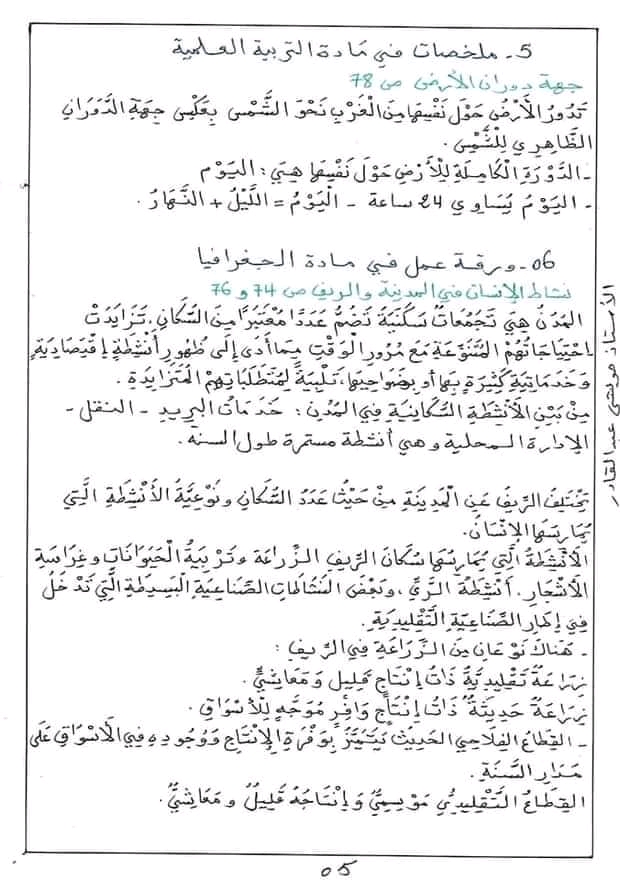 5- ملخصات في مادة التربية العلمية
جهة دوران الأرض ص 78
تَدُورُ الْأَرْضُ حَوْلَ نَفْسِهَا مِنَ الْغَرْبِ نَحْوَ الشَّمْسِ بِعَكْسِ جِهَةِ الدَّوَرَانِ
الظَّاهِرِي لِلشَّمْسِ.
- الدَّوْرَةِ الْكَامِلَةِ لِلْأَرْضِ حَوْلَ نَفْسِهَا هِيَ: اليَوْم
- اليَوْمُ يُسَاوِي 24 ساعة - الْيَوْمُ = اللَّيْلُ + النَّهَارُ.
06- ورقة عمل في مادة الجغرافيا
نشاط الإنسان في المدينة والريف ص 74 و 76
المُدُنُ هِيَ تَجَمُّعَاتٌ سَكَنِيَّةٌ تَضُمُّ عَدَدًا مُعْتَبَرًا مِنَ السُّكَّانِ، تَزَايَدَتْ
احْتِيَاجَاتُهُمْ الْمُتَنَوِّعَةُ مَعَ مُرُورِ الْوَقْتِ مِمَا أَدَى إِلَى ظُهُورِ أَنْشِطَةٍ إِقْتِصَادِيَةٍ
وَخَدَمَاتِيَةٍ كَثِيرَةٍ بِهَا أو بِضَوَاحِيهَا، تَلْبِيَةً لِمُتَطَلَّبَاتِهِمْ الْمُتَزَايِدَةِ.
مِنْ بَيْنِ الْأَنْشِطَةِ السُّكَّانِيَةِ فِي المُدُنِ: خَدَمَاتُ الْبَرِيدِ - النقل -
الإدارة المحلية وهي أنشطة مستمرة طول السنة.
يَخْتَلِفُ الرِّيفُ عَنِ الْمَدِينَةِ مِنْ حَيْثُ عَدَدُ السُّكَّانِ وَنَوْعِيَّةُ الْأَنْشِطَةِ الَّتِي
يُمَارِسُهَا الإِنْسَانُ.
الْأَنْشِطَةُ الَّتِي يُمَارِسُهَا سُكَّانُ الرِّيفِ الزِّرَاعَةُ وَتَرْبِيَةُ الْحَيَوَانَاتِ وَغِرَاسَةِ
الْأَشْجَارِ. أَنْشِطَةُ الرَّيِّ، وَبَعْضُ النَّشَاطَاتِ الصِّنَاعِيَةِ الْبَسِيطَةِ الَّتِي تَدْخُلُ
فِي إِطَارِ الصِّنَاعِيَةِ التَّقْلِيدِيَّةِ.
- هُنَاكَ نَوْعَانِ مِنَ الزِّرَاعَةِ فِي الرِّيفِ:
زِرَاعَةٌ تَقْلِيدِيَّةٌ ذَاتُ إِنْتَاجٍ قَلِيلٍ وَمَعَاشِيٍّ.
زِرَاعَةٌ حَدِيثَةٌ ذَاتُ إِنْتَاجٍ وَافِرٍ مُوَجَّهٍ لِلْأَسْوَاقِ.
- القِطَاعُ الفِلَاحِي الحَدِيثُ يَتَمَيَّزُ بِوَفْرَةِ الْإِنْتَاجِ وَوُجُودِهِ فِي الْأَسْوَاقِ عَلَى
مَدَارِ السَّنَةِ.
القِطَاعُ التَّقْلِيدِيُّ مَوْسِمِيٌّ وَإِنْتَاجُهُ قَلِيلٌ وَمَعَاشِيٌّ.
الأستاذ مويشي عبد القادر
05